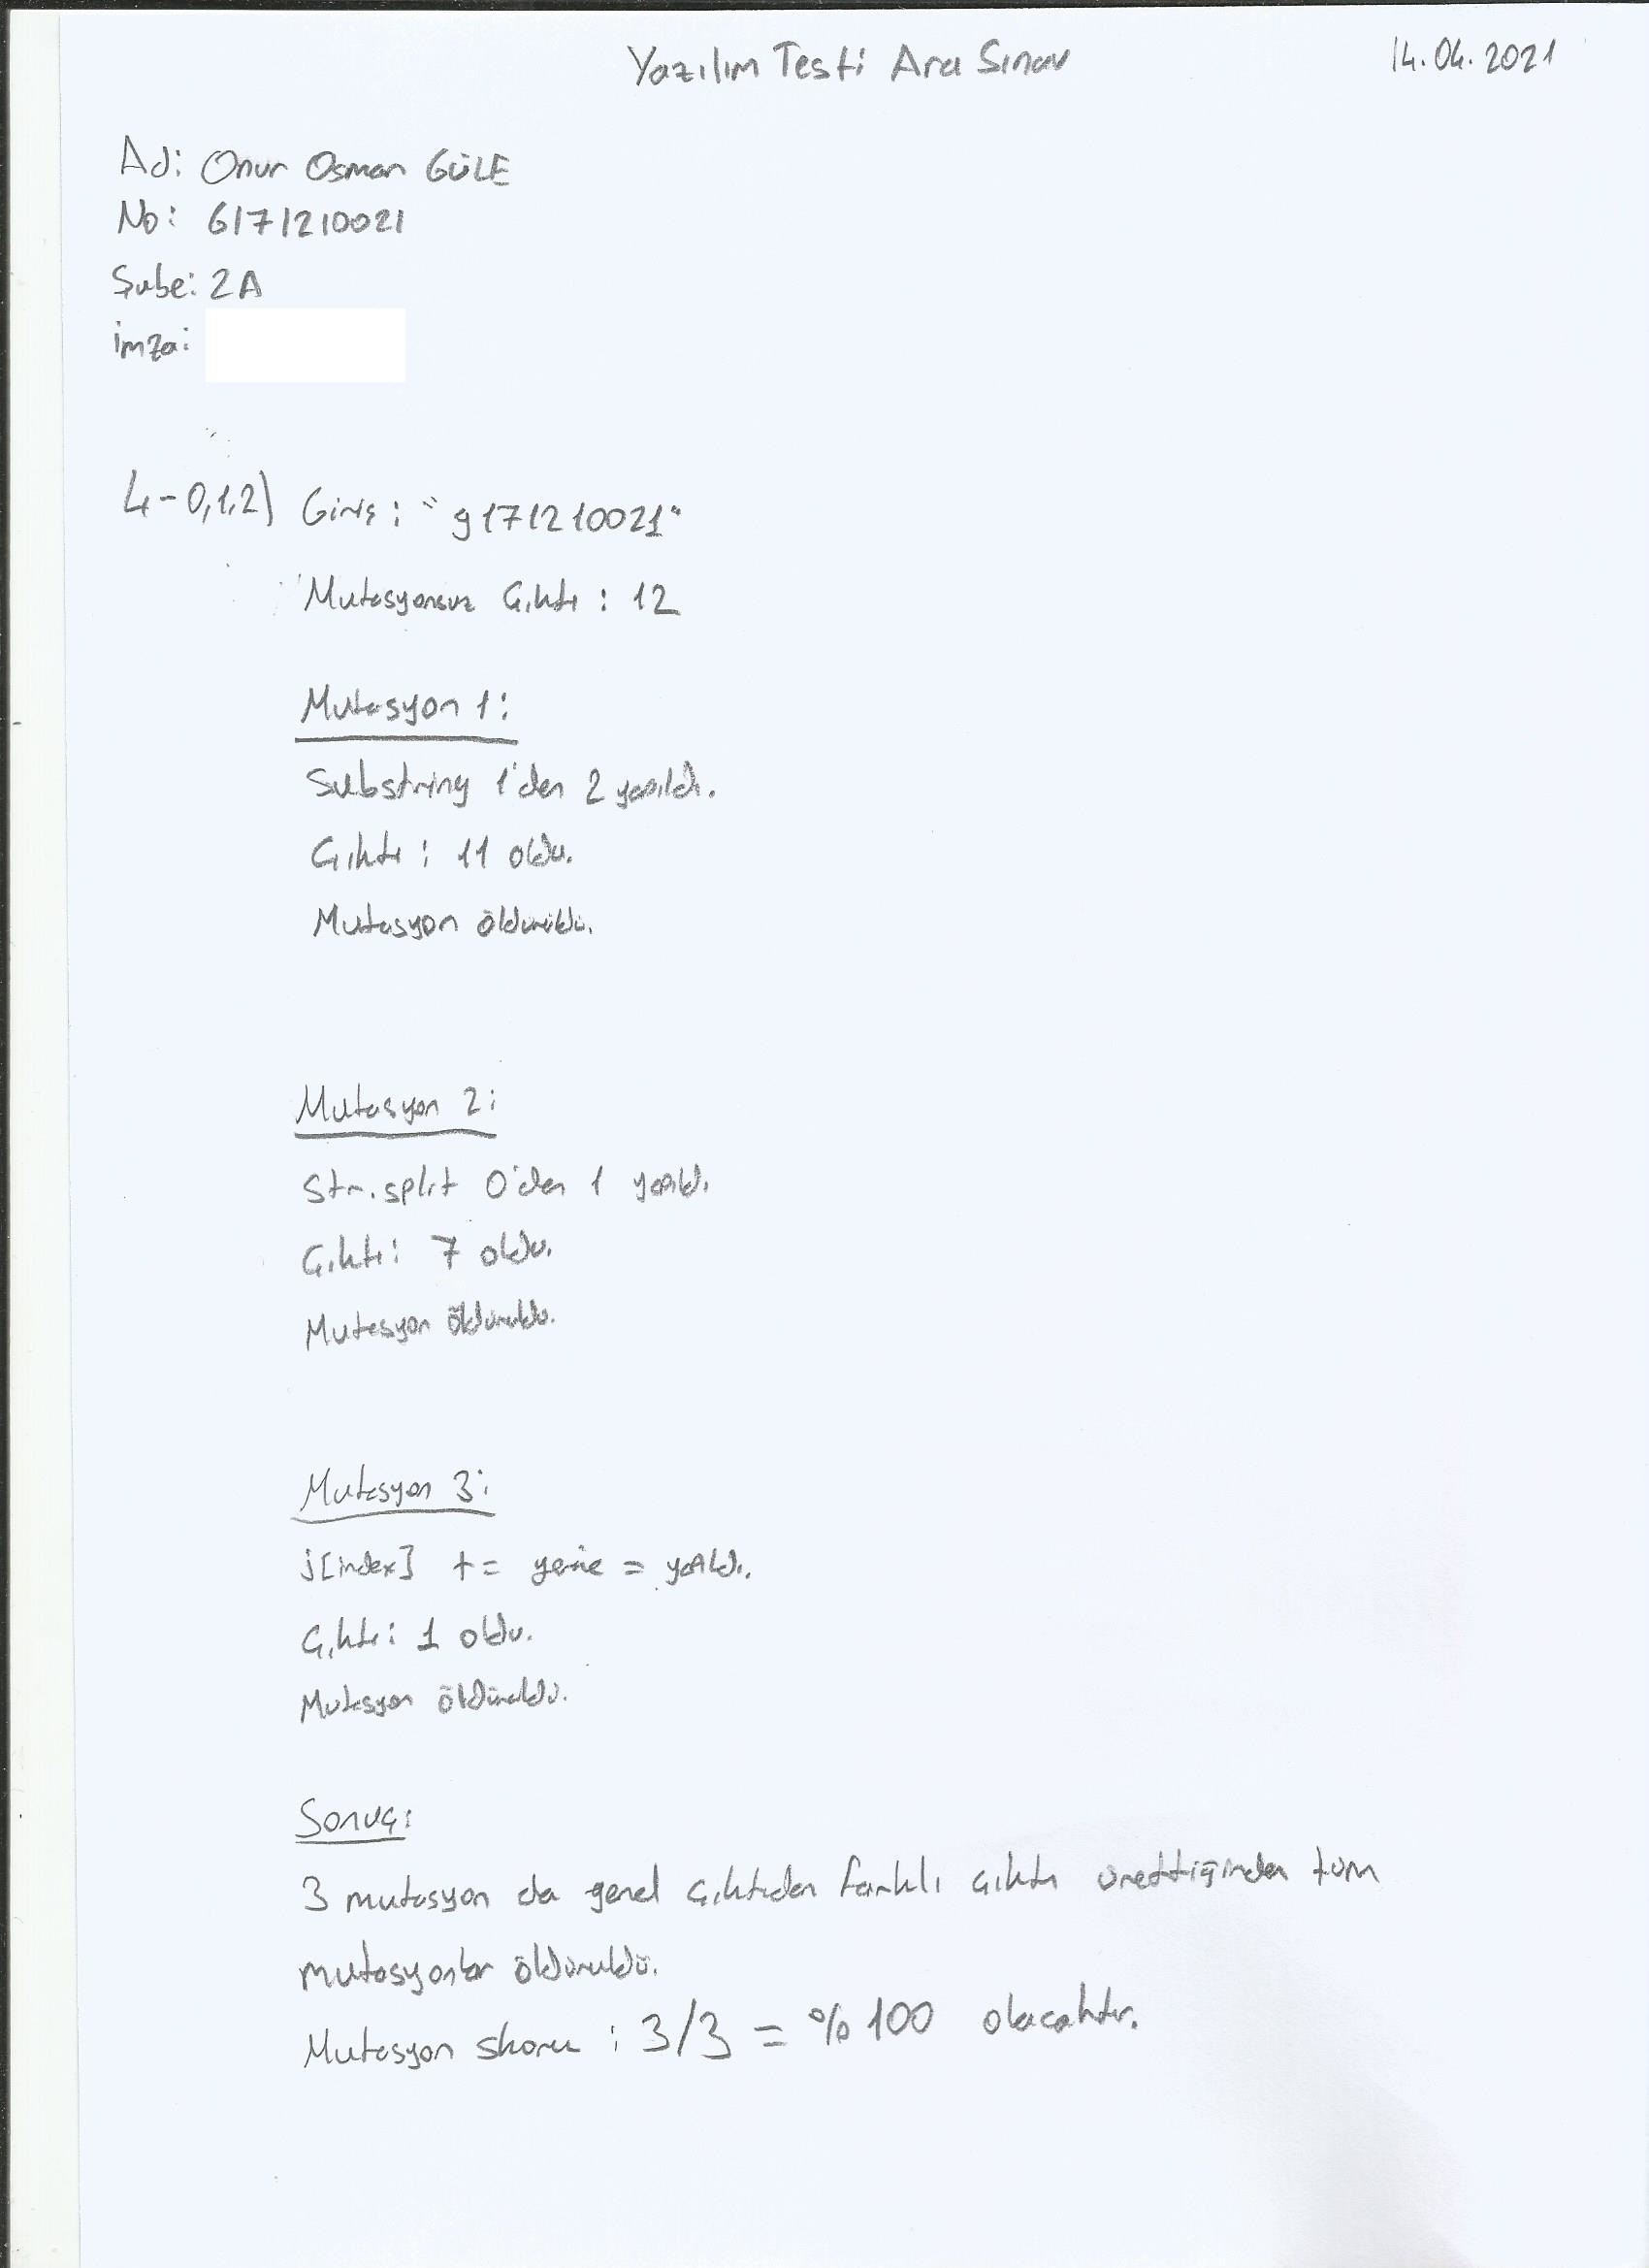 Yazılım Testi Ara Sınav
14.04.2021
Ad: Onur Osman GÜLE
No: G171210021
Şube: 2A
İmza:
4-0,1,2) Giriş: "g171210021"
Mutasyonsuz Çıktı: 12
Mutasyon 1:
Substring 1'den 2 yapıldı.
Çıktı: 11 oldu.
Mutasyon öldürüldü.
Mutasyon 2:
Str.split 0'dan 1 yapıldı.
Çıktı: 7 oldu.
Mutasyon öldürüldü.
Mutasyon 3:
j[index] += yerine = yapıldı.
Çıktı: 1 oldu.
Mutasyon öldürüldü.
Sonuç:
3 mutasyon da genel çıktıdan farklı çıktı ürettiğinden tüm
mutasyonlar öldürüldü.
Mutasyon skoru: 3/3 = %100 olacaktır.